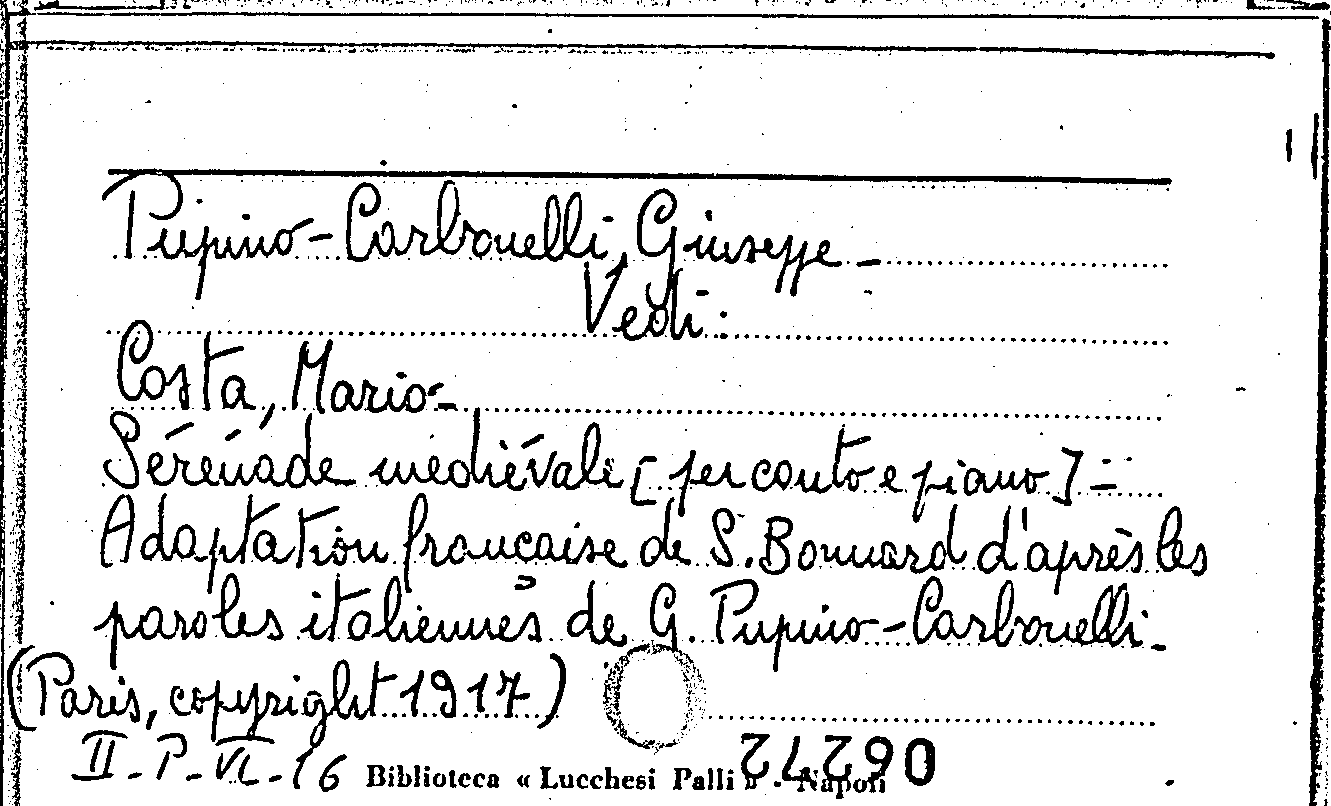 Pupino-Carbonelli, Giuseppe -
Vedi:
Costa, Mario -
Sérénade mediévale [per canto e piano] =
Adaptation française de S. Bonnard d'après les
paroles italiennes de G. Pupino-Carbonelli -
(Paris, copyright 1917)
II - P - VI - 16 Biblioteca « Lucchesi Palli » - Napoli